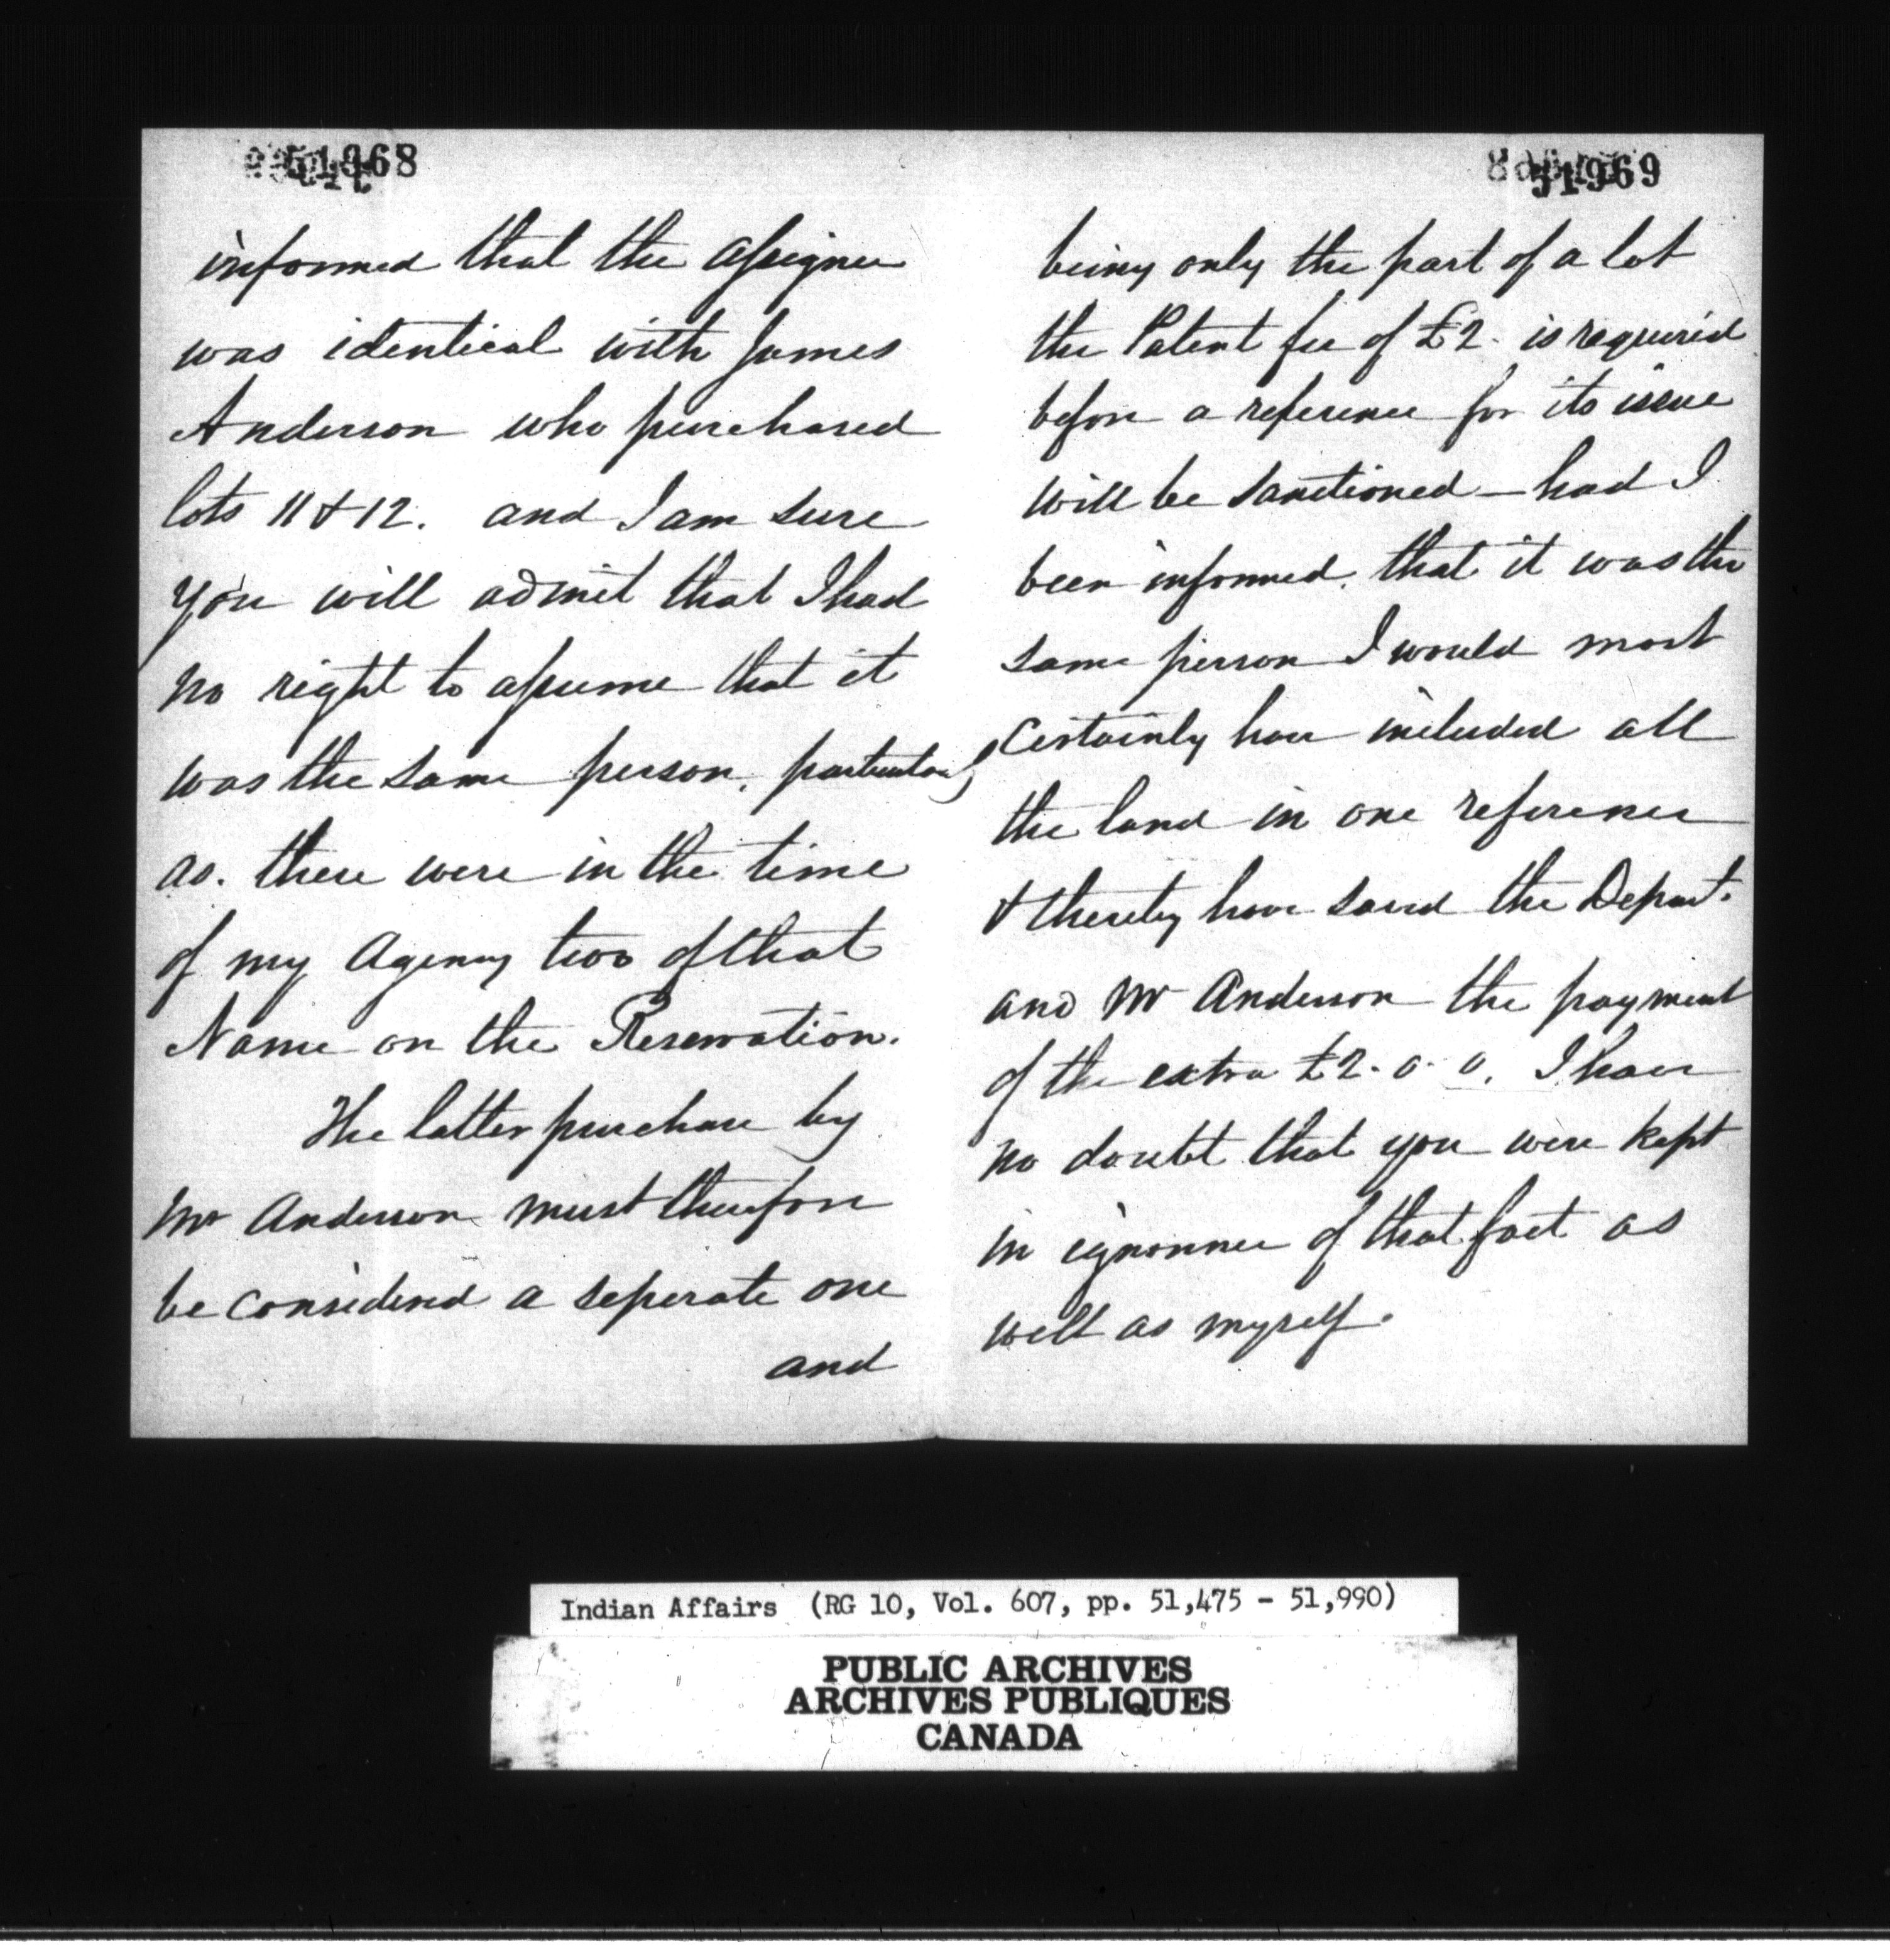 51968
informed that the assignee
was identical with James
Anderson who purchased
lots 11 & 12. and I am sure
you will admit that I had
no right to assume that it
was the same person, particularly
as. there were in the time
of my Agency two of that
Name on the Reservation.
The latter purchase by
Mr Anderson must therefore
be considered a seperate one
and
51969
being only the part of a lot
the Patent fee of £2. is required
before a reference for its issue
will be sanctioned — had I
been informed. that it was the
same person I would most
certainly have included all
the land in one reference
& thereby have saved the Depart.
and Mr Anderson the payment
of the extra £2. 0. 0. I have
no doubt that you were kept
in ignorance of that fact as
well as myself.
Indian Affairs (RG 10, Vol. 607, pp. 51,475 - 51,990)
PUBLIC ARCHIVES
ARCHIVES PUBLIQUES
CANADA